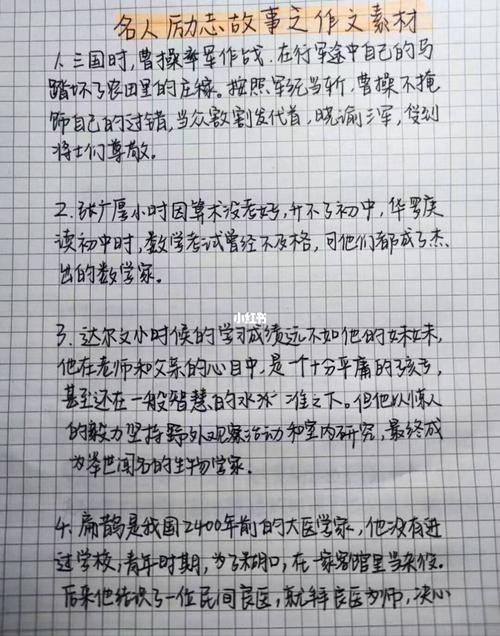 名人励志故事之作文素材
1.三国时,曹操率军作战,在行军途中自己的马
踏坏了农田里的庄稼。按照军纪当斩,曹操不掩
饰自己的过错,当众割发代首,晓谕三军,受到
将士们尊敬。
2.张广厚小时因算术没考好,升不了初中,华罗庚
读初中时,数学考试曾经不及格,可他们都成了杰
出的数学家。
小红书
3.达尔文小时候的学习成绩远不如他的妹妹,
他在老师和父亲的心目中,是一个十分平庸的孩子,
甚至还在一般智慧的水准之下。但他以惊人
的毅力坚持野外观察活动和室内研究,最终成
为举世闻名的生物学家。
4.扁鹊是我国2400年前的大医学家,他没有进
过学校,青年时期,为了糊口,在一家客馆里当杂役。
后来他结识了一位民间良医,就拜良医为师,决心